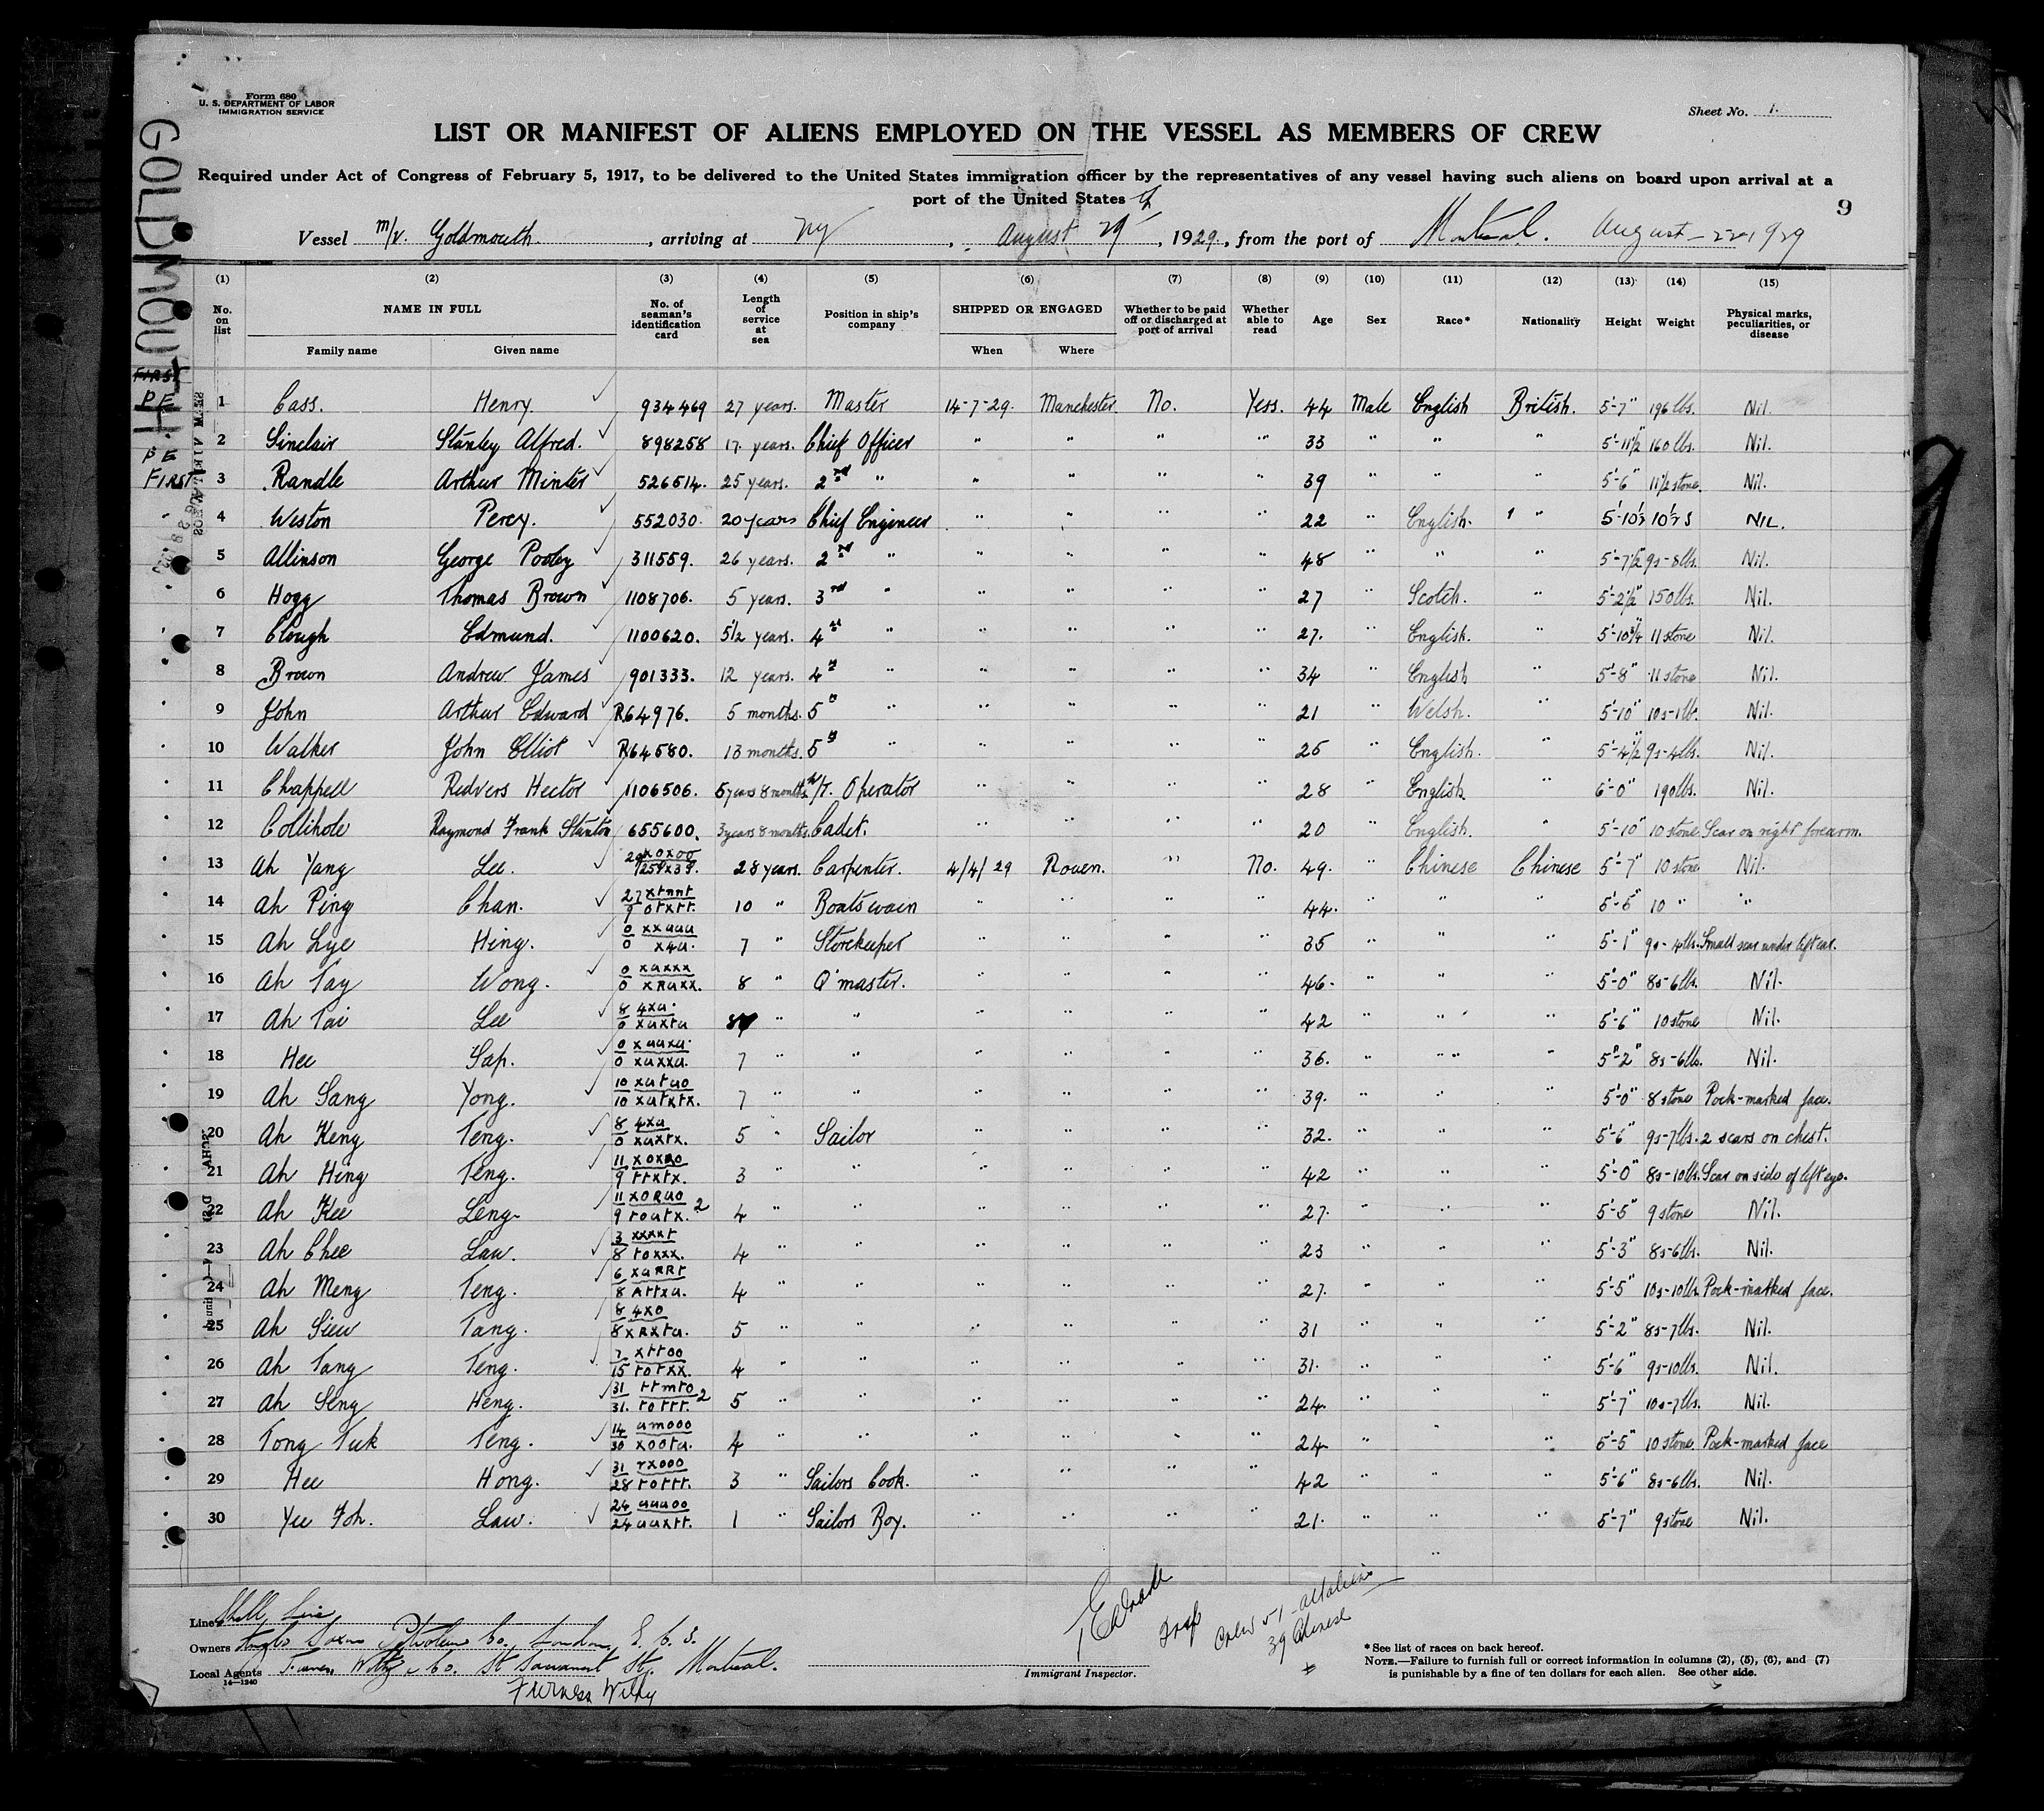 Form 680
U. S. DEPARTMENT OF LABOR
IMMIGRATION SERVICE
Sheet No. 1.
LIST OR MANIFEST OF ALIENS EMPLOYED ON THE VESSEL AS MEMBERS OF CREW
Required under Act of Congress of February 5, 1917, to be delivered to the United States immigration officer by the representatives of any vessel having such aliens on board upon arrival at a
port of the United States
9
GOLDMOUTH
Vessel m/v. Goldmouth. , arriving at NY , August 29th , 1929., from the port of Montreal. August 22 1929
(1) (2) (3) (4) (5) (6) (7) (8) (9) (10) (11) (12) (13) (14) (15)
No. on list NAME IN FULL No. of seaman's identification card Length of service at sea Position in ship's company SHIPPED OR ENGAGED Whether to be paid off or discharged at port of arrival Whether able to read Age Sex Race* Nationality Height Weight Physical marks, peculiarities, or disease
Family name Given name When Where
FIRST
PE
PE
FIRST
1 Cass. Henry. 934469 27 years. Master 14-7-29. Manchester. No. Yess. 44 Male English British. 5'-7" 196 lbs. Nil.
2 Sinclair Stanley Alfred. 898258 17. years. Chief Officer " " " " 33 " " " 5'-11½ 160 lbs. Nil.
3 Randle Arthur Minter 526514. 25 years. 2nd " " " " " 39 " " " 5'-6" 11½ stone. Nil.
4 Weston Percy. 552030. 20 years Chief Engineer " " " " 22 " English. " 5'-10½ 10½ s NIL.
5 Allinson George Pooley 311559. 26 years. 2nd " " " " " 48 " " " 5'-7½ 9s-8lbs. Nil.
6 Hogg Thomas Brown 1108706. 5 years. 3rd " " " " " 27 " Scotch. " 5'-2½" 150 lbs. Nil.
7 Clough Edmund. 1100620. 5½ years. 4th " " " " " 27. " English. " 5'-10¾ 11 stone Nil.
8 Brown Andrew James 901333. 12 years. 4th " " " " " 34 " English " 5'-8" 11 stone Nil.
9 John Arthur Edward R64976. 5 months. 5th " " " " " 21 " Welsh. " 5'-10" 10s-1lb. Nil.
10 Walker John Elliot R64580. 13 months. 5th " " " " " 25 " English. " 5'-4½ 9s-4lbs. Nil.
11 Chappell Redvers Hector 1106506. 5 years 8 months. W/T. Operator " " " " 28 " English. " 6'-0" 190lbs. Nil.
12 Collihole Raymond Frank Stanton 655600. 3 years 8 months. Cadet. " " " " 20 " English. " 5'-10" 10 stone. Scar on right forearm.
13 Ah Yang Lee. 28 years. Carpenter. 4/4/29 Rouen. " No. 49. " Chinese Chinese 5'-7" 10 stone Nil.
14 Ah Ping Chan. 10 " Boatswain " " " " 44. " " " 5'-5" 10 " "
15 Ah Lye Hing. 7 " Storekeeper " " " " 35 " " " 5'-1" 9s-4lbs. Small scar under left ear.
16 Ah Tay Wong. 8 " Q'master. " " " " 46. " " " 5'-0" 8s-6lbs. Nil.
17 Ah Tai Lee " " " " " " 42 " " " 5'-6" 10 stone Nil.
18 Hee Sap. 7 " " " " " " 36. " " " 5'-2" 8s-6lbs. Nil.
19 Ah Sang Yong. 7 " " " " " " 39. " " " 5'-0" 8 stone Pock-marked face.
20 Ah Keng Teng. 5 " Sailor " " " " 32. " " " 5'-6" 9s-7lbs. 2 scars on chest.
21 Ah Hing Teng. 3 " " " " " " 42 " " " 5'-0" 8s-10lbs. Scar on side of left eye.
22 Ah Kee Leng. 4 " " " " " " 27. " " " 5'-5" 9 stone Nil.
23 Ah Chee Law. 4 " " " " " " 23 " " " 5'-3" 8s-6lbs. Nil.
24 Ah Meng Teng. 4 " " " " " " 27. " " " 5'-5" 10s-10lbs. Pock-marked face.
25 Ah Siew Tang. 5 " " " " " " 31 " " " 5'-2" 8s-7lbs. Nil.
26 Ah Tang Teng. 4 " " " " " " 31. " " " 5'-6" 9s-10lbs. Nil.
27 Ah Seng Heng. 5 " " " " " " 24. " " " 5'-7" 10s-7lbs. Nil.
28 Tong Tuk Teng. 4 " " " " " " 24 " " " 5'-5" 10 stone. Pock-marked face
29 Hee Hong. 3 " Sailors Cook. " " " " 42 " " " 5'-6" 8s-6lbs. Nil.
30 Yee Foh. Law. 1 " Sailors Boy. " " " " 21. " " " 5'-7" 9 stone Nil.
Line Shell Line
Owners Anglo Saxon Petroleum Co., London, E. C. 3.
Local Agents Furness Withy & Co. St Sacrament St. Montreal.
14—1240
Furness Withy
Immigrant Inspector.
Crew 51 - all aliens
39 Chinese
*See list of races on back hereof.
NOTE.—Failure to furnish full or correct information in columns (2), (5), (6), and (7)
is punishable by a fine of ten dollars for each alien. See other side.